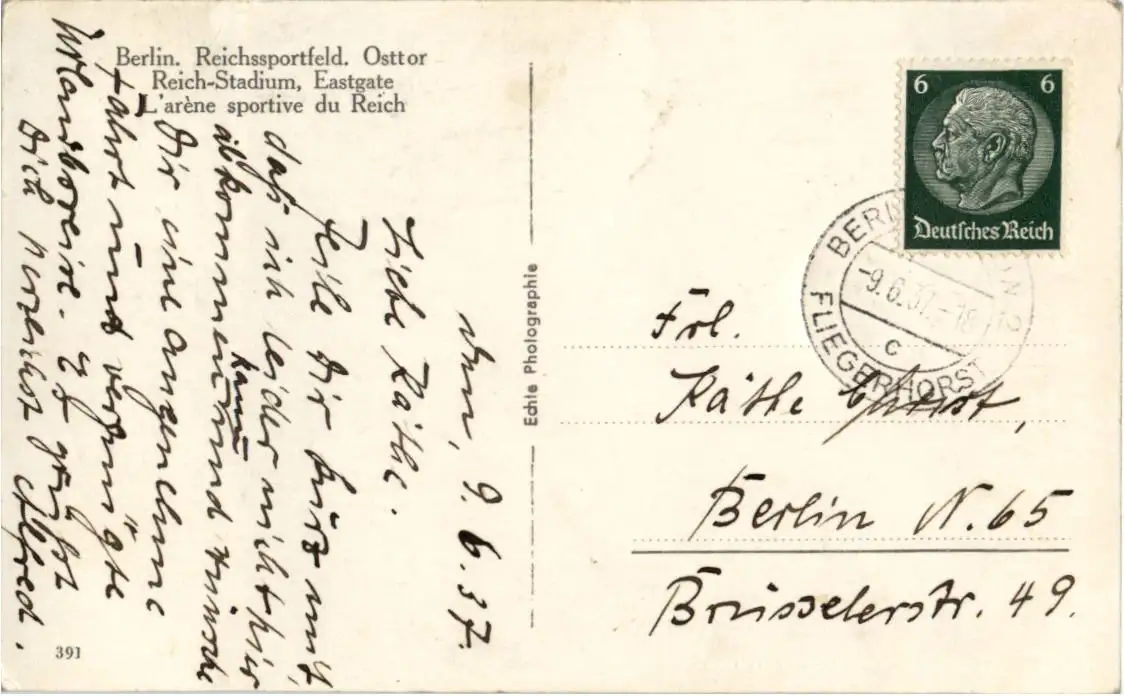 Berlin. Reichssportfeld. Osttor
Reich-Stadium, Eastgate
L'arène sportive du Reich
den, 9. 6. 37.
Liebe Käthe.
Teile Dir kurz mit,
daß ich leider nicht hier
abkommen kann und wünsche
Dir eine angenehme
Fahrt und vergnügte
Urlaubszeit. Es grüßt
Dich herzlichst Alfred.
391
Echte Photographie
6 6
Deutsches Reich
BERLIN
-9.6.37.-18
c
FLIEGERHORST
Frl.
Käthe
Berlin N. 65
Brüsselerstr. 49.